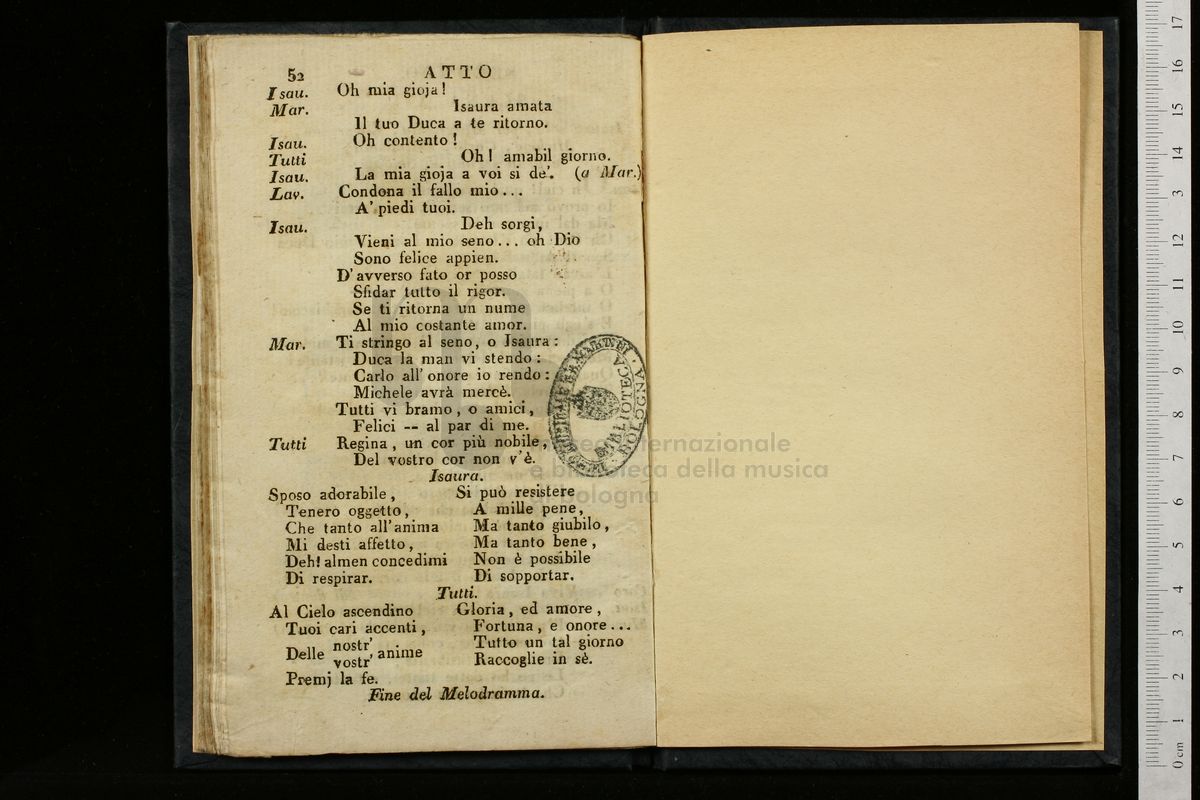 52 ATTO
Isau. Oh mia gioja!
Mar. Isaura amata
Il tuo Duca a te ritorno.
Isau. Oh contento!
Tutti Oh! amabil giorno.
Isau. La mia gioja a voi si de'. (a Mar.)
Lav. Condona il fallo mio...
A' piedi tuoi.
Isau. Deh sorgi,
Vieni al mio seno... oh Dio
Sono felice appien.
D'avverso fato or posso
Sfidar tutto il rigor.
Se ti ritorna un nume
Al mio costante amor.
Mar. Ti stringo al seno, o Isaura:
Duca la man vi stendo:
Carlo all'onore io rendo:
Michele avrà mercè.
Tutti vi bramo, o amici,
Felici -- al par di me.
Tutti Regina, un cor più nobile,
Del vostro cor non v'è.
Isaura.
Sposo adorabile,
Tenero oggetto,
Che tanto all'anima
Mi desti affetto,
Deh! almen concedimi
Di respirar.
Si può resistere
A mille pene,
Ma tanto giubilo,
Ma tanto bene,
Non è possibile
Di sopportar.
Tutti.
Al Cielo ascendino
Tuoi cari accenti,
Delle nostr' anime
vostr'
Premj la fe.
Gloria, ed amore,
Fortuna, e onore...
Tutto un tal giorno
Raccoglie in sè.
Fine del Melodramma.
BIBLIOTECA
BOLOGNA
museo internazionale
e biblioteca della musica
di bologna
0 cm 1 2 3 4 5 6 7 8 9 10 11 12 13 14 15 16 17